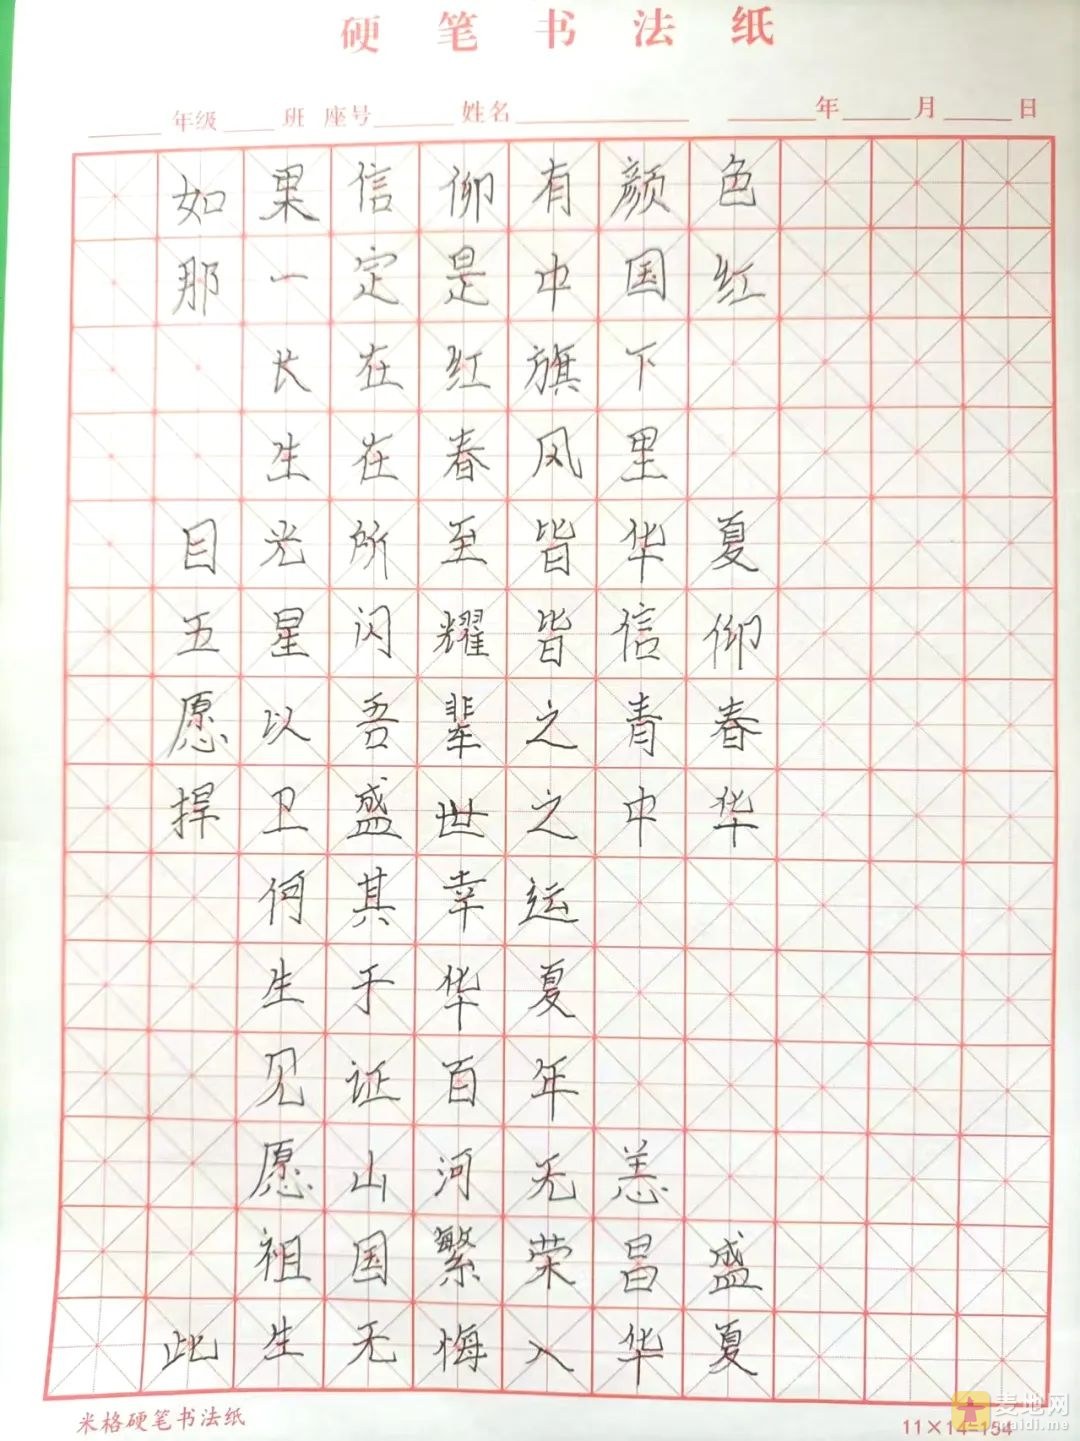 硬笔书法纸
年级 班 座号 姓名 年 月 日
如果信仰有颜色
那一定是中国红
长在红旗下
生在春风里
目光所至皆华夏
五星闪耀皆信仰
愿以吾辈之青春
捍卫盛世之中华
何其幸运
生于华夏
见证百年
愿山河无恙
祖国繁荣昌盛
此生无悔入华夏
米格硬笔书法纸
11×14=154
麦地网
maidi.me